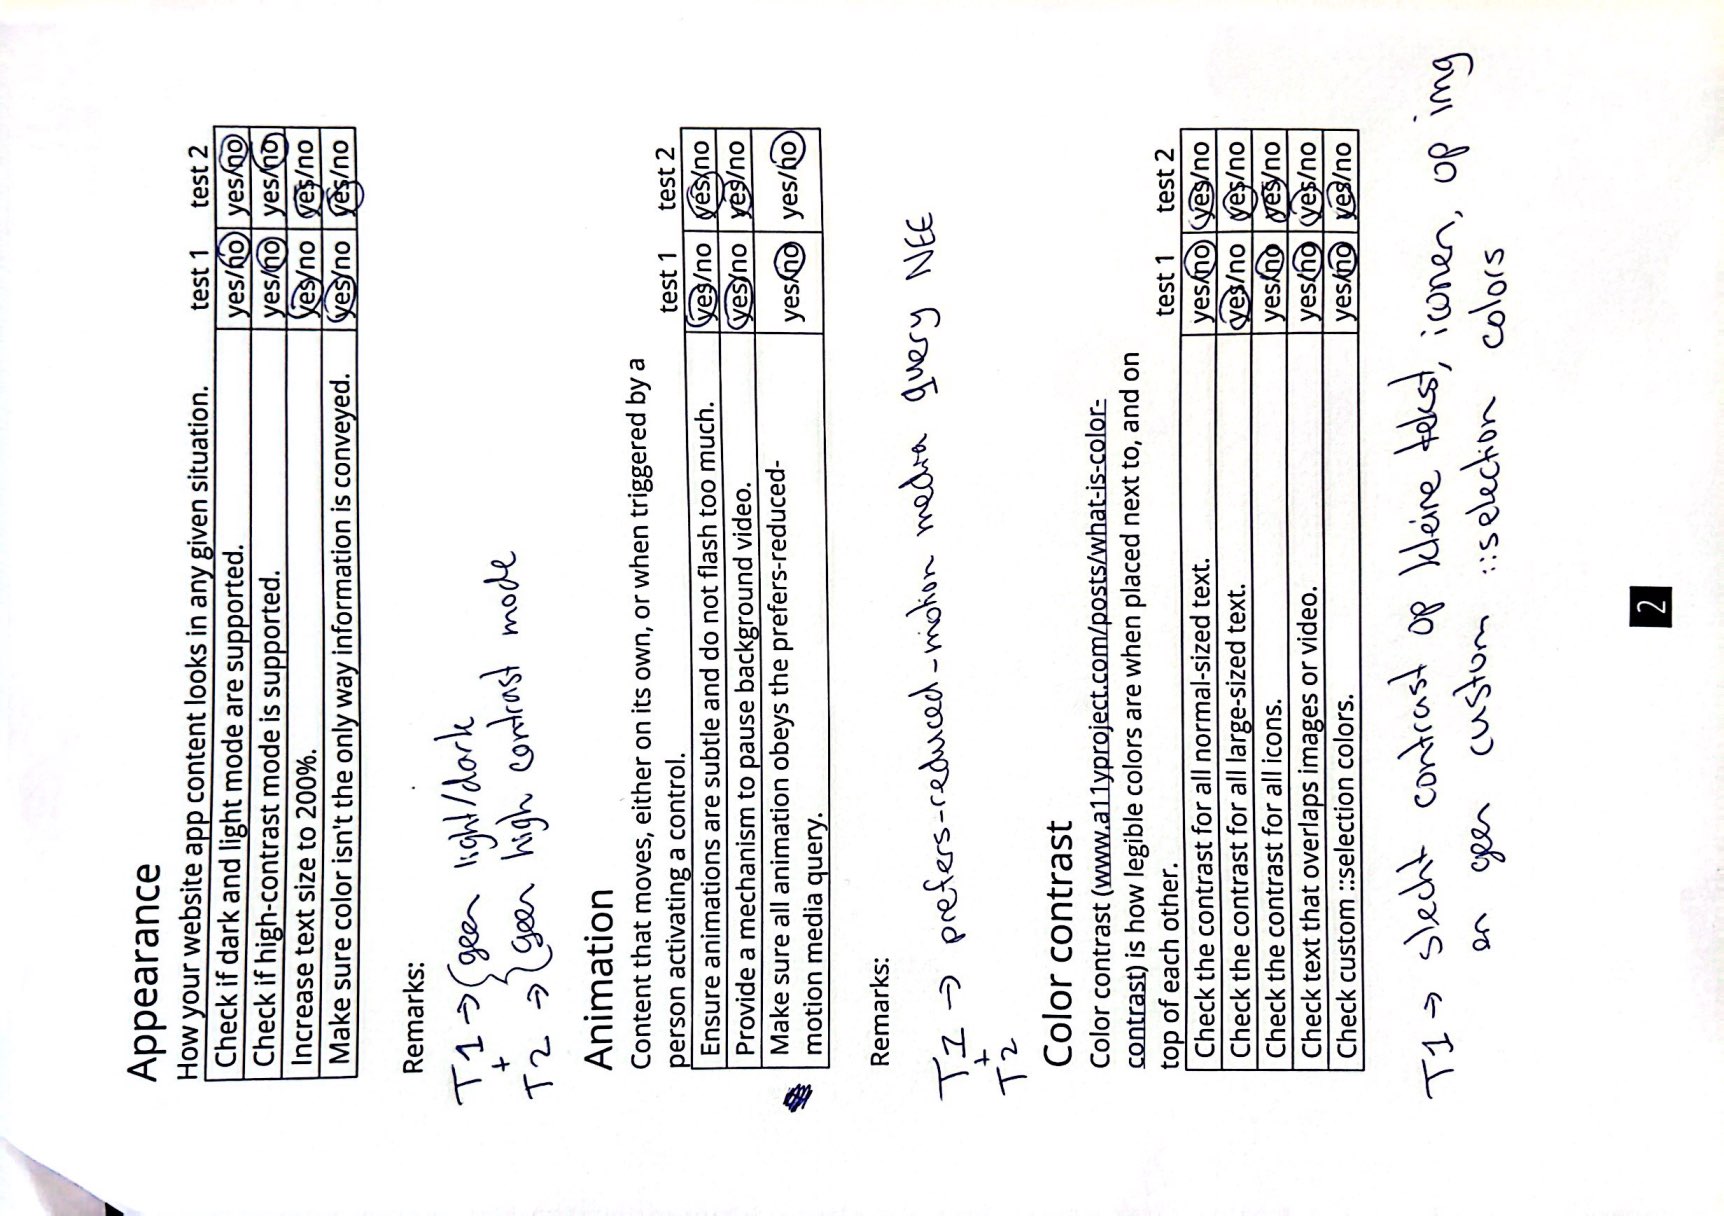 Appearance
How your website app content looks in any given situation. test 1 test 2
Check if dark and light mode are supported. yes/no yes/no
Check if high-contrast mode is supported. yes/no yes/no
Increase text size to 200%. yes/no yes/no
Make sure color isn't the only way information is conveyed. yes/no yes/no
Remarks:
T1 → { geen light/dark
+
T2 → { geen high contrast mode
Animation
Content that moves, either on its own, or when triggered by a
person activating a control. test 1 test 2
Ensure animations are subtle and do not flash too much. yes/no yes/no
Provide a mechanism to pause background video. yes/no yes/no
Make sure all animation obeys the prefers-reduced-
motion media query. yes/no yes/no
Remarks:
T1 → prefers-reduced-motion media query NEE
+
T2
Color contrast
Color contrast (www.a11yproject.com/posts/what-is-color-
contrast) is how legible colors are when placed next to, and on
top of each other. test 1 test 2
Check the contrast for all normal-sized text. yes/no yes/no
Check the contrast for all large-sized text. yes/no yes/no
Check the contrast for all icons. yes/no yes/no
Check text that overlaps images or video. yes/no yes/no
Check custom ::selection colors. yes/no yes/no
T1 → slecht contrast op kleine tekst, iconen, op img
en geen custom ::selection colors
2